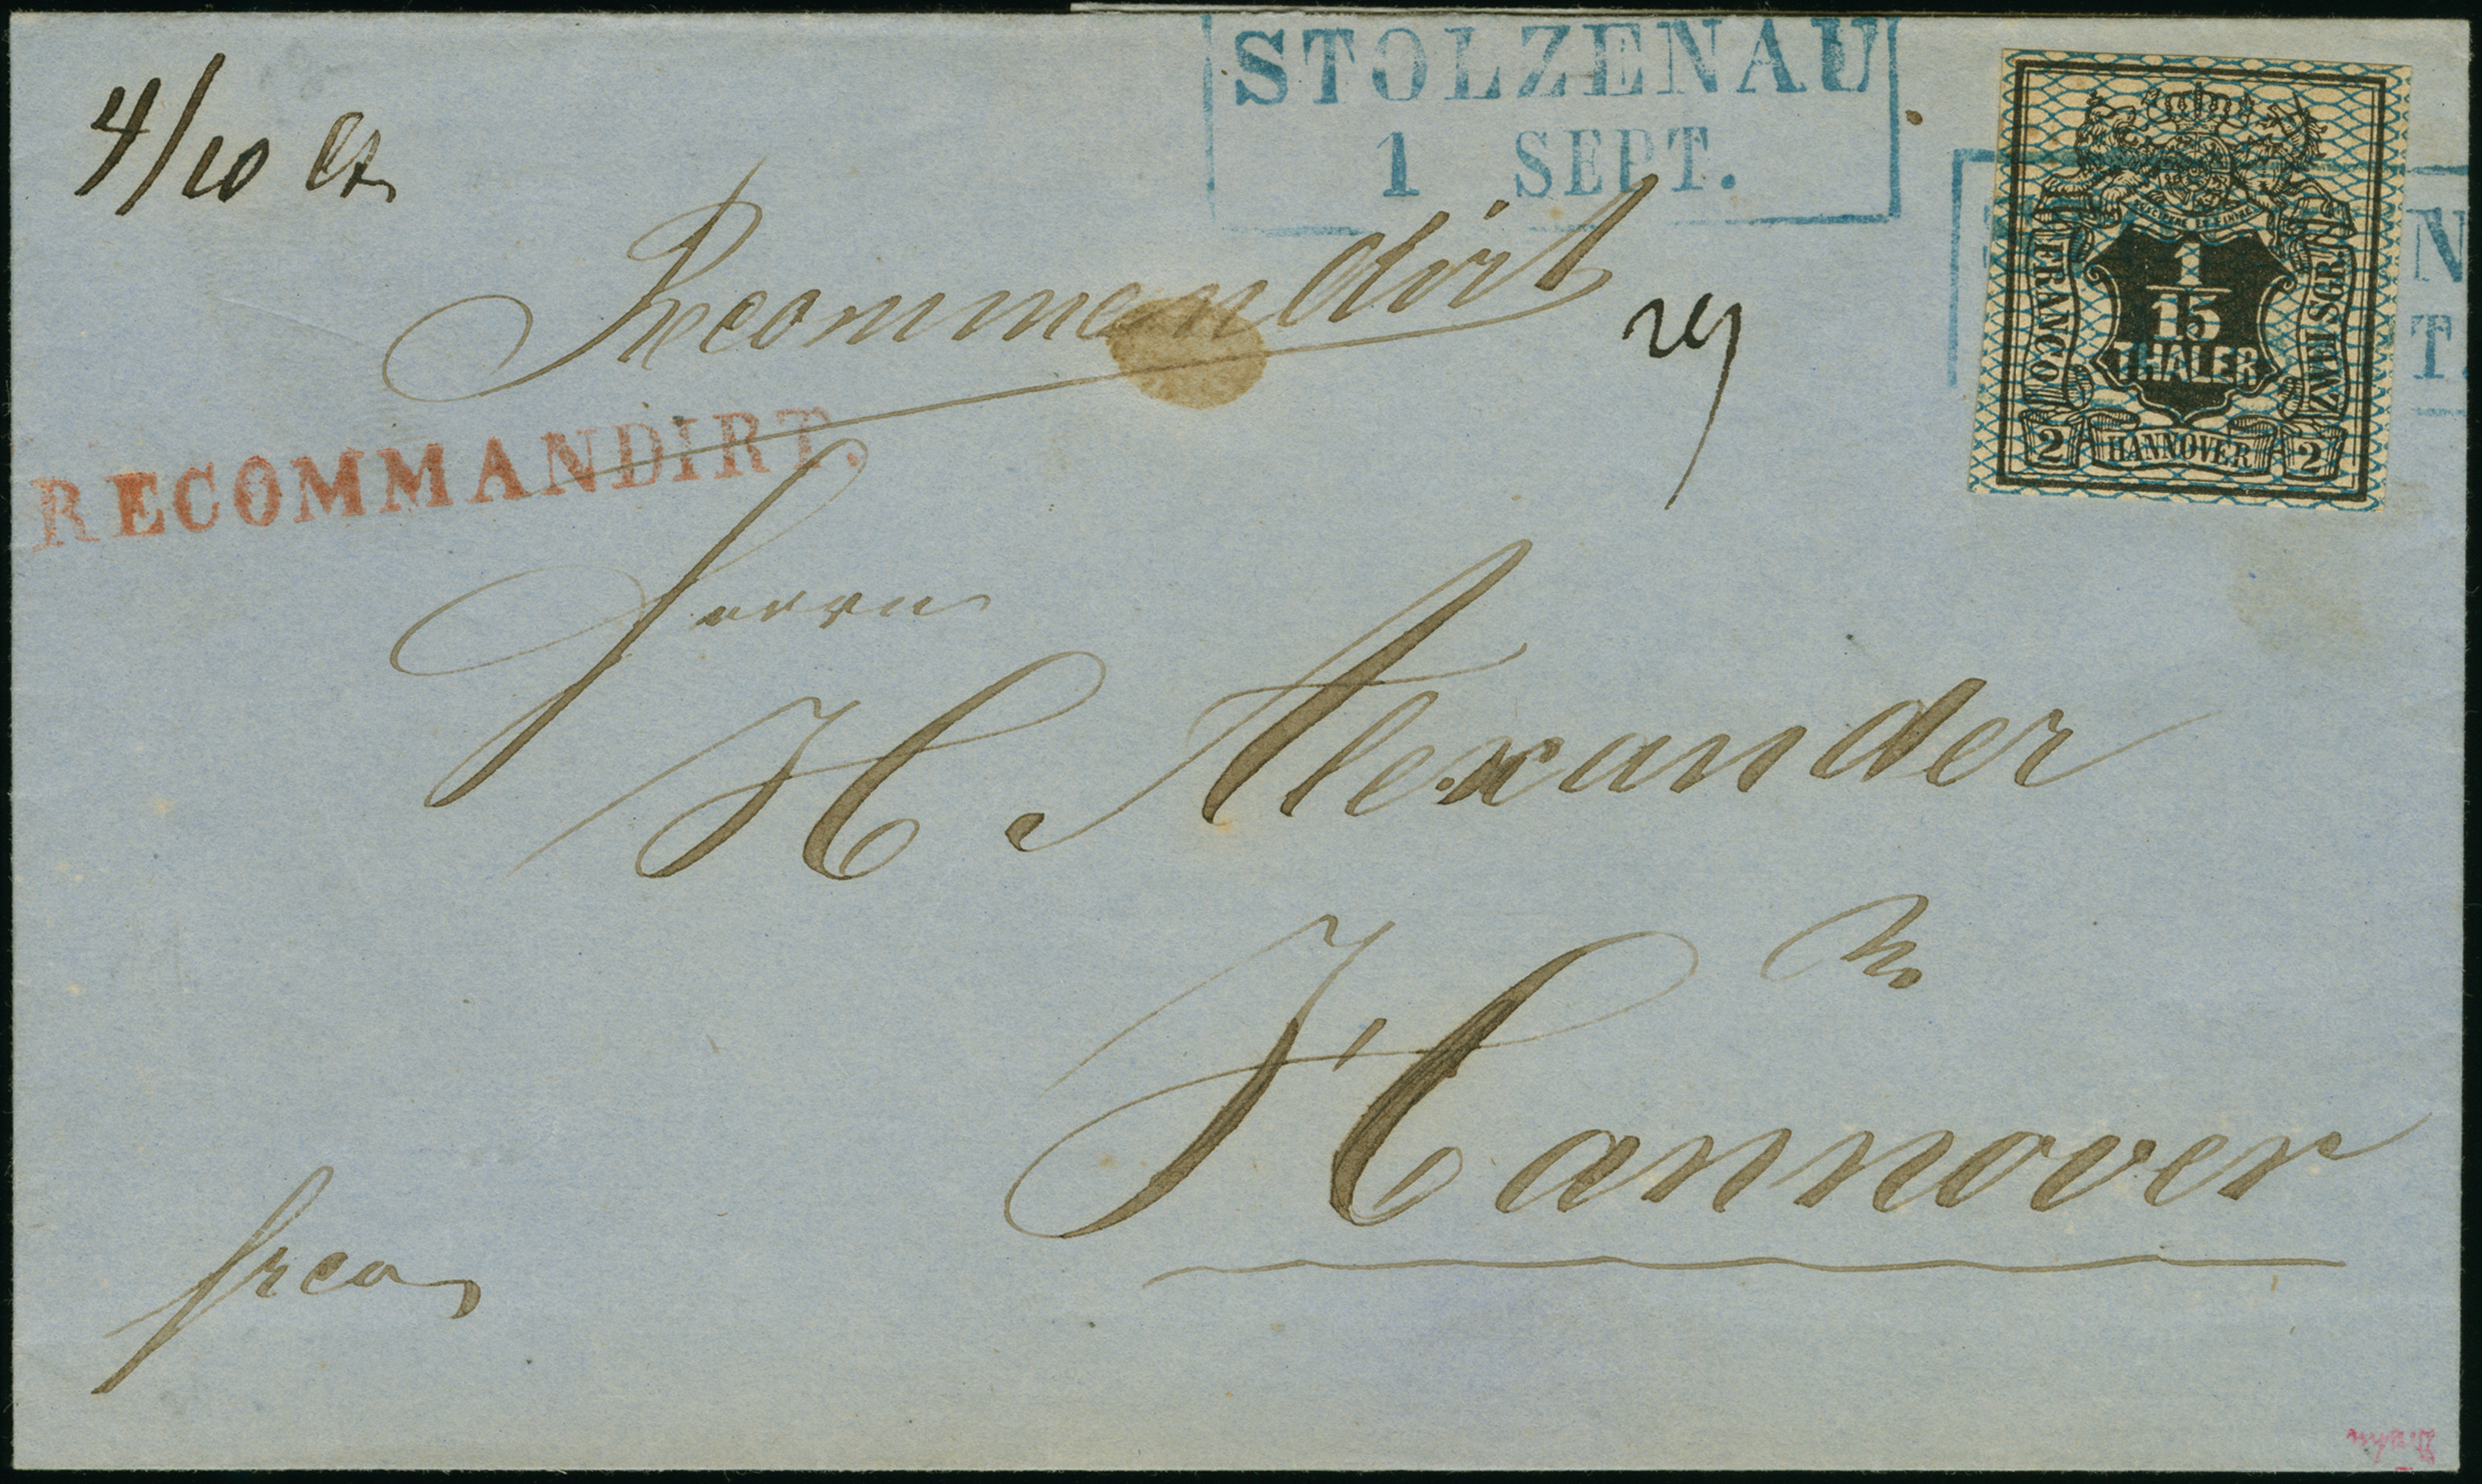 STOLZENAU
1 SEPT.
4/10
Recommendirt
RECOMMANDIRT.
1
15
THALER
FRANCO
2 SGR. 1 HLNZ
2
HANNOVER
2
N
T.
Herrn
H Alexander
Hannover
frco